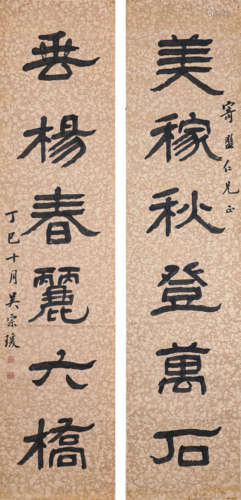 美稼秋登萬石
寄盦仁兄正
垂楊春麗六橋
丁巳十月吳宗瑗